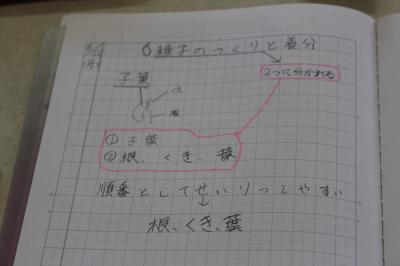 6種子のつくりと養分
(月)
2つに分かれる
子葉
根
①子葉
②根、くき、葉
順番としてせいりつしやすい
根、くき、葉